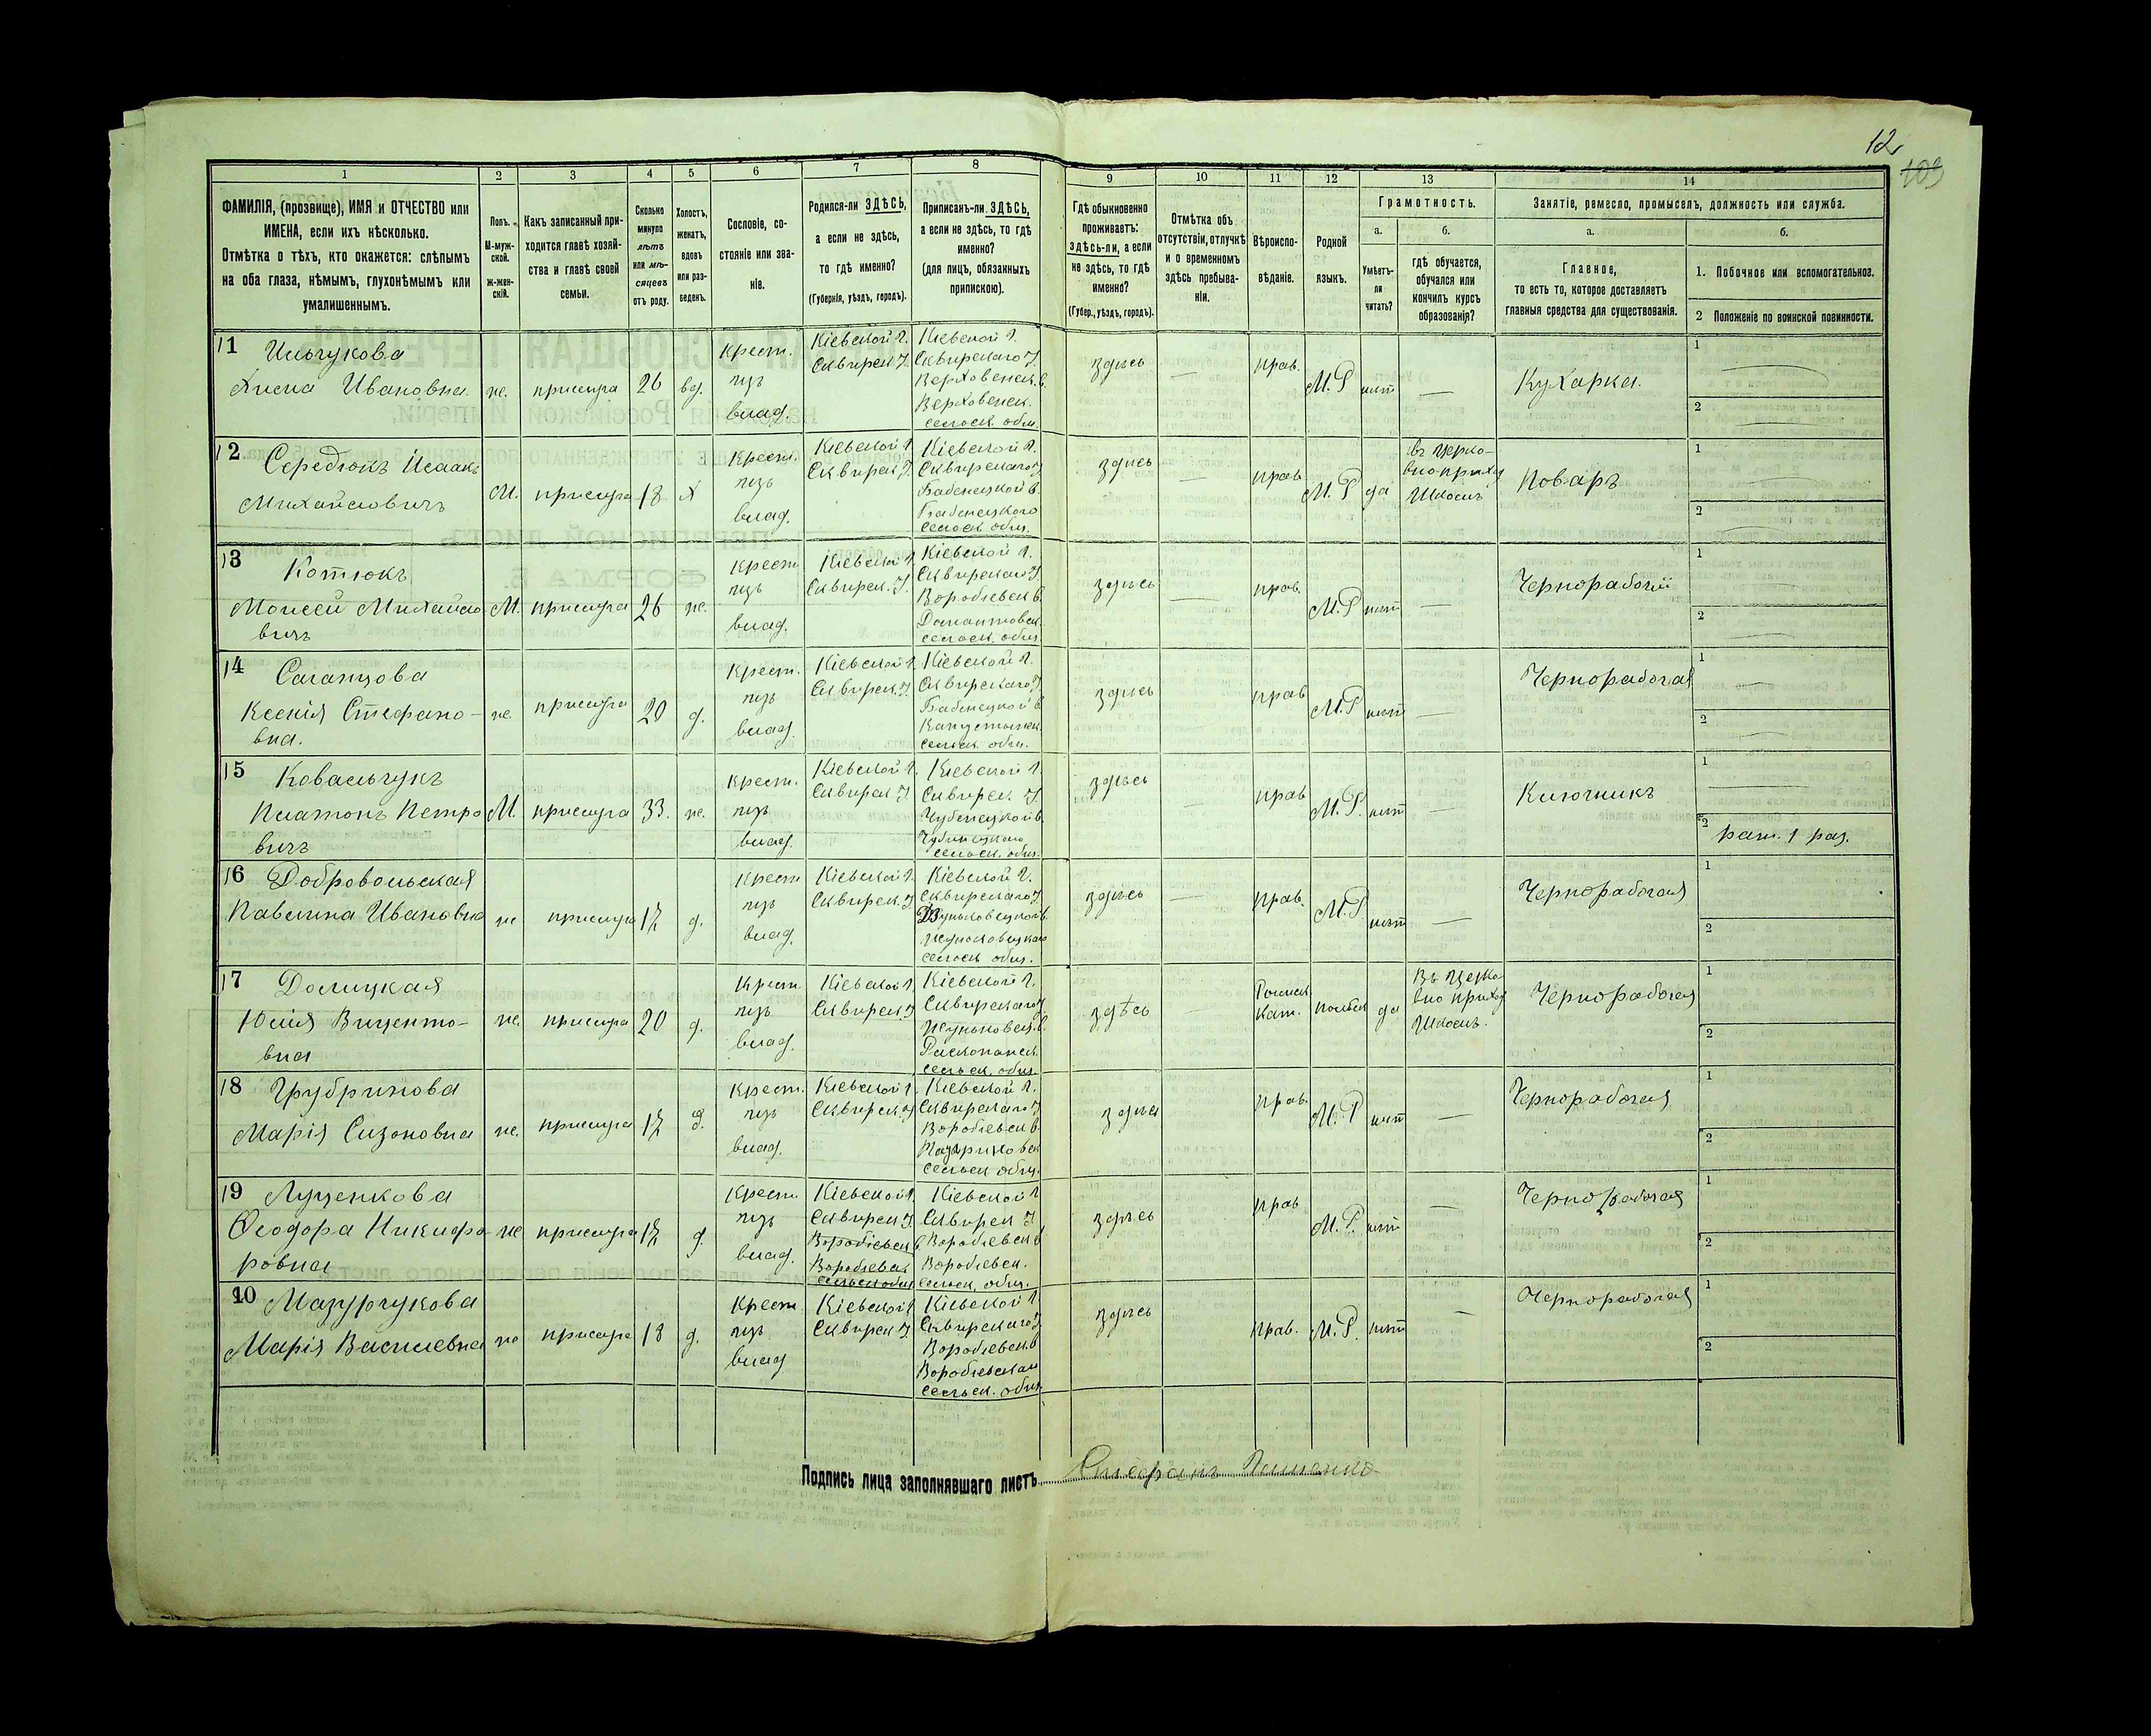 12
103
1
2
3
4
5
6
7
8
9
10
11
12
13
14
ФАМИЛІЯ, (прозвище), ИМЯ и ОТЧЕСТВО или
ИМЕНА, если ихъ нѣсколько.
Отмѣтка о тѣхъ, кто окажется: слѣпымъ
на оба глаза, нѣмымъ, глухонѣмымъ или
умалишеннымъ.
Полъ.
М-муж-
ской.
ж-жен-
скій.
Какъ записанный при-
ходится главѣ хозяй-
ства и главѣ своей
семьи.
Сколько
минуло
лѣтъ
или мѣ-
сяцевъ
отъ роду.
Холостъ,
женатъ,
вдовъ
или раз-
веденъ.
Сословіе, со-
стояніе или зва-
ніе.
Родился-ли ЗДѢСЬ,
а если не здѣсь,
то гдѣ именно?
(Губернія, уѣздъ, городъ).
Приписанъ-ли ЗДѢСЬ,
а если не здѣсь, то гдѣ
именно?
(для лицъ, обязанныхъ
припискою).
Гдѣ обыкновенно
проживаетъ:
здѣсь-ли, а если
не здѣсь, то гдѣ
именно?
(Губер., уѣздъ, городъ).
Отмѣтка объ
отсутствіи, отлучкѣ
и о временномъ
здѣсь пребыва-
ніи.
Вѣроиспо-
вѣданіе.
Родной
языкъ.
Грамотность.
а.
Умѣетъ-
ли
читать?
б.
гдѣ обучается,
обучался или
кончилъ курсъ
образованія?
Занятіе, ремесло, промыселъ, должность или служба.
а.
Главное,
то есть то, которое доставляетъ
главныя средства для существованія.
б.
1. Побочное или вспомогательное.
2 Положеніе по воинской повинности.
11 Ильчукова
Ивановна же. прислуга 26 вд.
Крест. изъ влад.
Кіевской г. Сквирск. у.
Кіевской г. Сквирскаго у.
Верховенск. в.
Верховенск.
сельск. общ.
здѣсь — прав. М.Р нѣт — Кухарка.
1
2
12 Середюкъ Исаакъ
Михайловичъ М. прислуга 18 х
Крест. изъ влад.
Кіевской г. Сквирск. у.
Кіевской г. Сквирскаго у.
сельск. общ.
здѣсь — прав. М.Р да
въ церко-
вно приход
школѣ
Поваръ
1
2
13 Котюкъ
Моисей Михайло-
вичъ М. прислуга 26 же.
Крест. изъ влад.
Кіевской г. Сквирск. у.
Кіевской г. Сквирскаго у.
Воробіевск. в.
сельск. общ.
здѣсь — прав. М.Р нѣт — Чернорабочій
1
2
14
Ксенія Стефано-
вна. же прислуга 20 д.
Крест. изъ влад.
Кіевской г. Сквирск. у.
Кіевской г. Сквирскаго у.
сельск. общ.
здѣсь прав М.Р нѣт — Чернорабочая
1
2
15 Ковальчукъ
Платонъ Петро
вичъ М. прислуга 33. же.
Крест. изъ влад.
Кіевской г. Сквирск. у.
Кіевской г. Сквирск. у.
сельск. общ.
здѣсь — прав М.Р. нѣт — Ключникъ
1
2 рат. 1 раз.
16 Добровольская
Павлина Ивановна же прислуга 17 д.
Крест изъ влад.
Кіевской г. Сквирск. у
Кіевской г. Сквирскаго у.
сельск общ.
здѣсь прав. М.Р. нѣт — Чернорабочая
1
2
17 Долицкая
Юлія Виценто-
вна же. прислуга 20 д.
Крест изъ влад.
Кіевской г. Сквирск. у
Кіевской г. Сквирскаго у
сельск. общ.
здѣсь — Римск. Кат. польск да
Въ церко
вно приход
школѣ.
Чернорабочая
1
2
18
Марія Сизоновна же. прислуга 17 д.
Крест. изъ влад.
Кіевской г. Сквирск. у
Кіевской г. Сквирскаго у
Воробіевск в.
сельск общ.
здѣсь прав. М.Р нѣт — Чернорабочая
1
2
19 Луценкова
Ѳеодора Никифо-
ровна же прислуга 17 д.
Крест. изъ влад.
Кіевской г. Сквирск у
Воробіевск в.
Воробіевск.
сельск общ.
Кіевской г Сквирск у
Воробіевск в
Воробіевск.
сельск. общ.
здѣсь прав М.Р. нѣт — Чернорабочая
1
2
10 Мазурчукова
Марія Василевна же прислуга 18 д.
Крест изъ влад
Кіевской г Сквирск у
Кіевской г Сквирскаго у
Воробіевск в
Воробіевскаго
сельск. общ.
здѣсь прав. М.Р. нѣт — Чернорабочая
1
2
Подпись лица заполнявшаго листъ Стефанъ